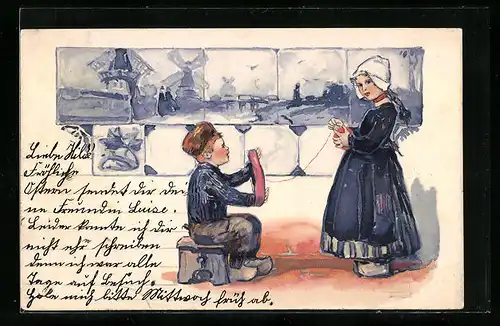 Liebe Hilde
Fröhliche
Ostern sendet dir dei
ne Freundin Luise.
Leider konnte ich dir
nicht ehr schreiben
denn ich war alle
Tage auf Besuch.
Hole mich bitte Mittwoch früh ab.